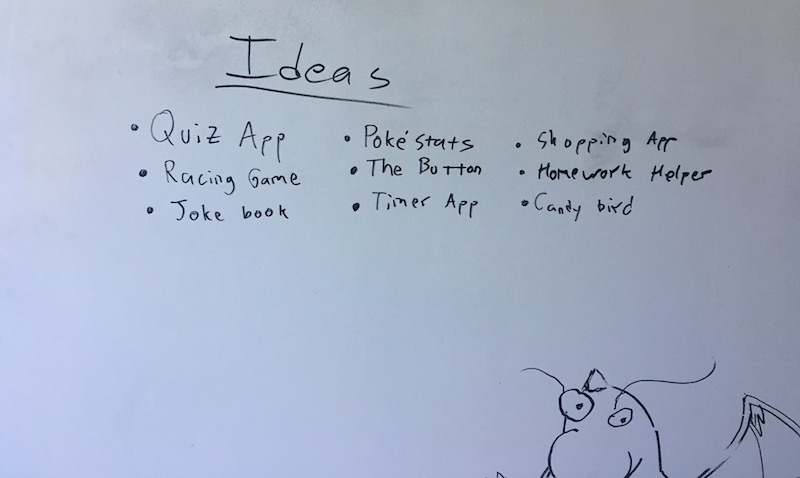 Ideas
• Quiz App
• Racing Game
• Joke book
• Poké stats
• The Button
• Timer App
• Shopping App
• Homework Helper
• Candy bird